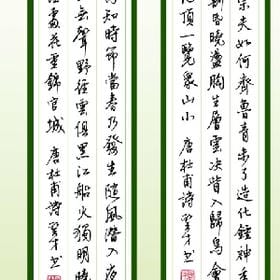 宗夫如何齊魯青未了造化鍾神秀
割昏曉盪胸生層雲決眥入歸鳥會
頂一覽衆山小 唐杜甫詩
知時節當春乃發生隨風潛入夜
無聲野徑雲俱黑江船火獨明曉
處花重錦官城 唐杜甫詩